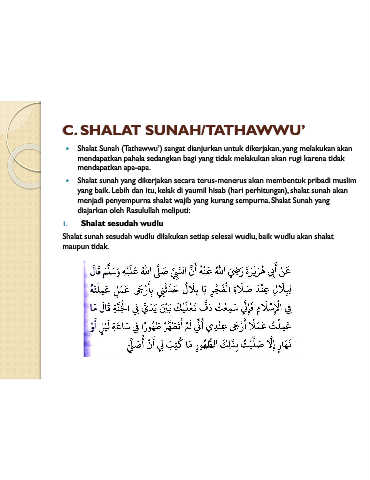 C. SHALAT SUNAH/TATHAWWU’
• Shalat Sunah (Tathawwu’) sangat dianjurkan untuk dikerjakan, yang melakukan akan
mendapatkan pahala sedangkan bagi yang tidak melakukan akan rugi karena tidak
mendapatkan apa-apa.
• Shalat sunah yang dikerjakan secara terus-menerus akan membentuk pribadi muslim
yang baik. Lebih dan itu, kelak di yaumil hisab (hari perhitungan), shalat sunah akan
menjadi penyempurna shalat wajib yang kurang sempurna. Shalat Sunah yang
diajarkan oleh Rasulullah meliputi:
1. Shalat sesudah wudlu
Shalat sunah sesudah wudlu dilakukan setiap selesai wudlu, baik wudlu akan shalat
maupun tidak.
عَنْ أَبِي هُرَيْرَةَ رَضِيَ اللهُ عَنْهُ أَنَّ النَّبِيَّ صَلَّى اللهُ عَلَيْهِ وَسَلَّمَ قَالَ
لِبِلَالٍ عِنْدَ صَلَاةِ الْفَجْرِ يَا بِلَالُ حَدِّثْنِي بِأَرْجَى عَمَلٍ عَمِلْتَهُ
فِي الْإِسْلَامِ فَإِنِّي سَمِعْتُ دَفَّ نَعْلَيْكَ بَيْنَ يَدَيَّ فِي الْجَنَّةِ قَالَ مَا
عَمِلْتُ عَمَلًا أَرْجَى عِنْدِي أَنِّي لَمْ أَتَطَهَّرْ طَهُورًا فِي سَاعَةِ لَيْلٍ أَوْ
نَهَارٍ إِلَّا صَلَّيْتُ بِذَلِكَ الطُّهُورِ مَا كُتِبَ لِي أَنْ أُصَلِّيَ